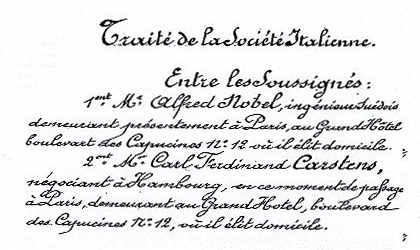 Traité de la Société Italienne.
Entre les Soussignés:
1ent Mr Alfred Nobel, ingénieur Suédois
demeurant présentement à Paris, au Grand Hôtel
boulevard des Capucines No 12 où il élit domicile
2ent Mr Carl Ferdinand Carstens,
négociant à Hambourg, en ce moment de passage
à Paris, demeurant au Grand Hotel, boulevard
des Capucines No 12, où il élit domicile.